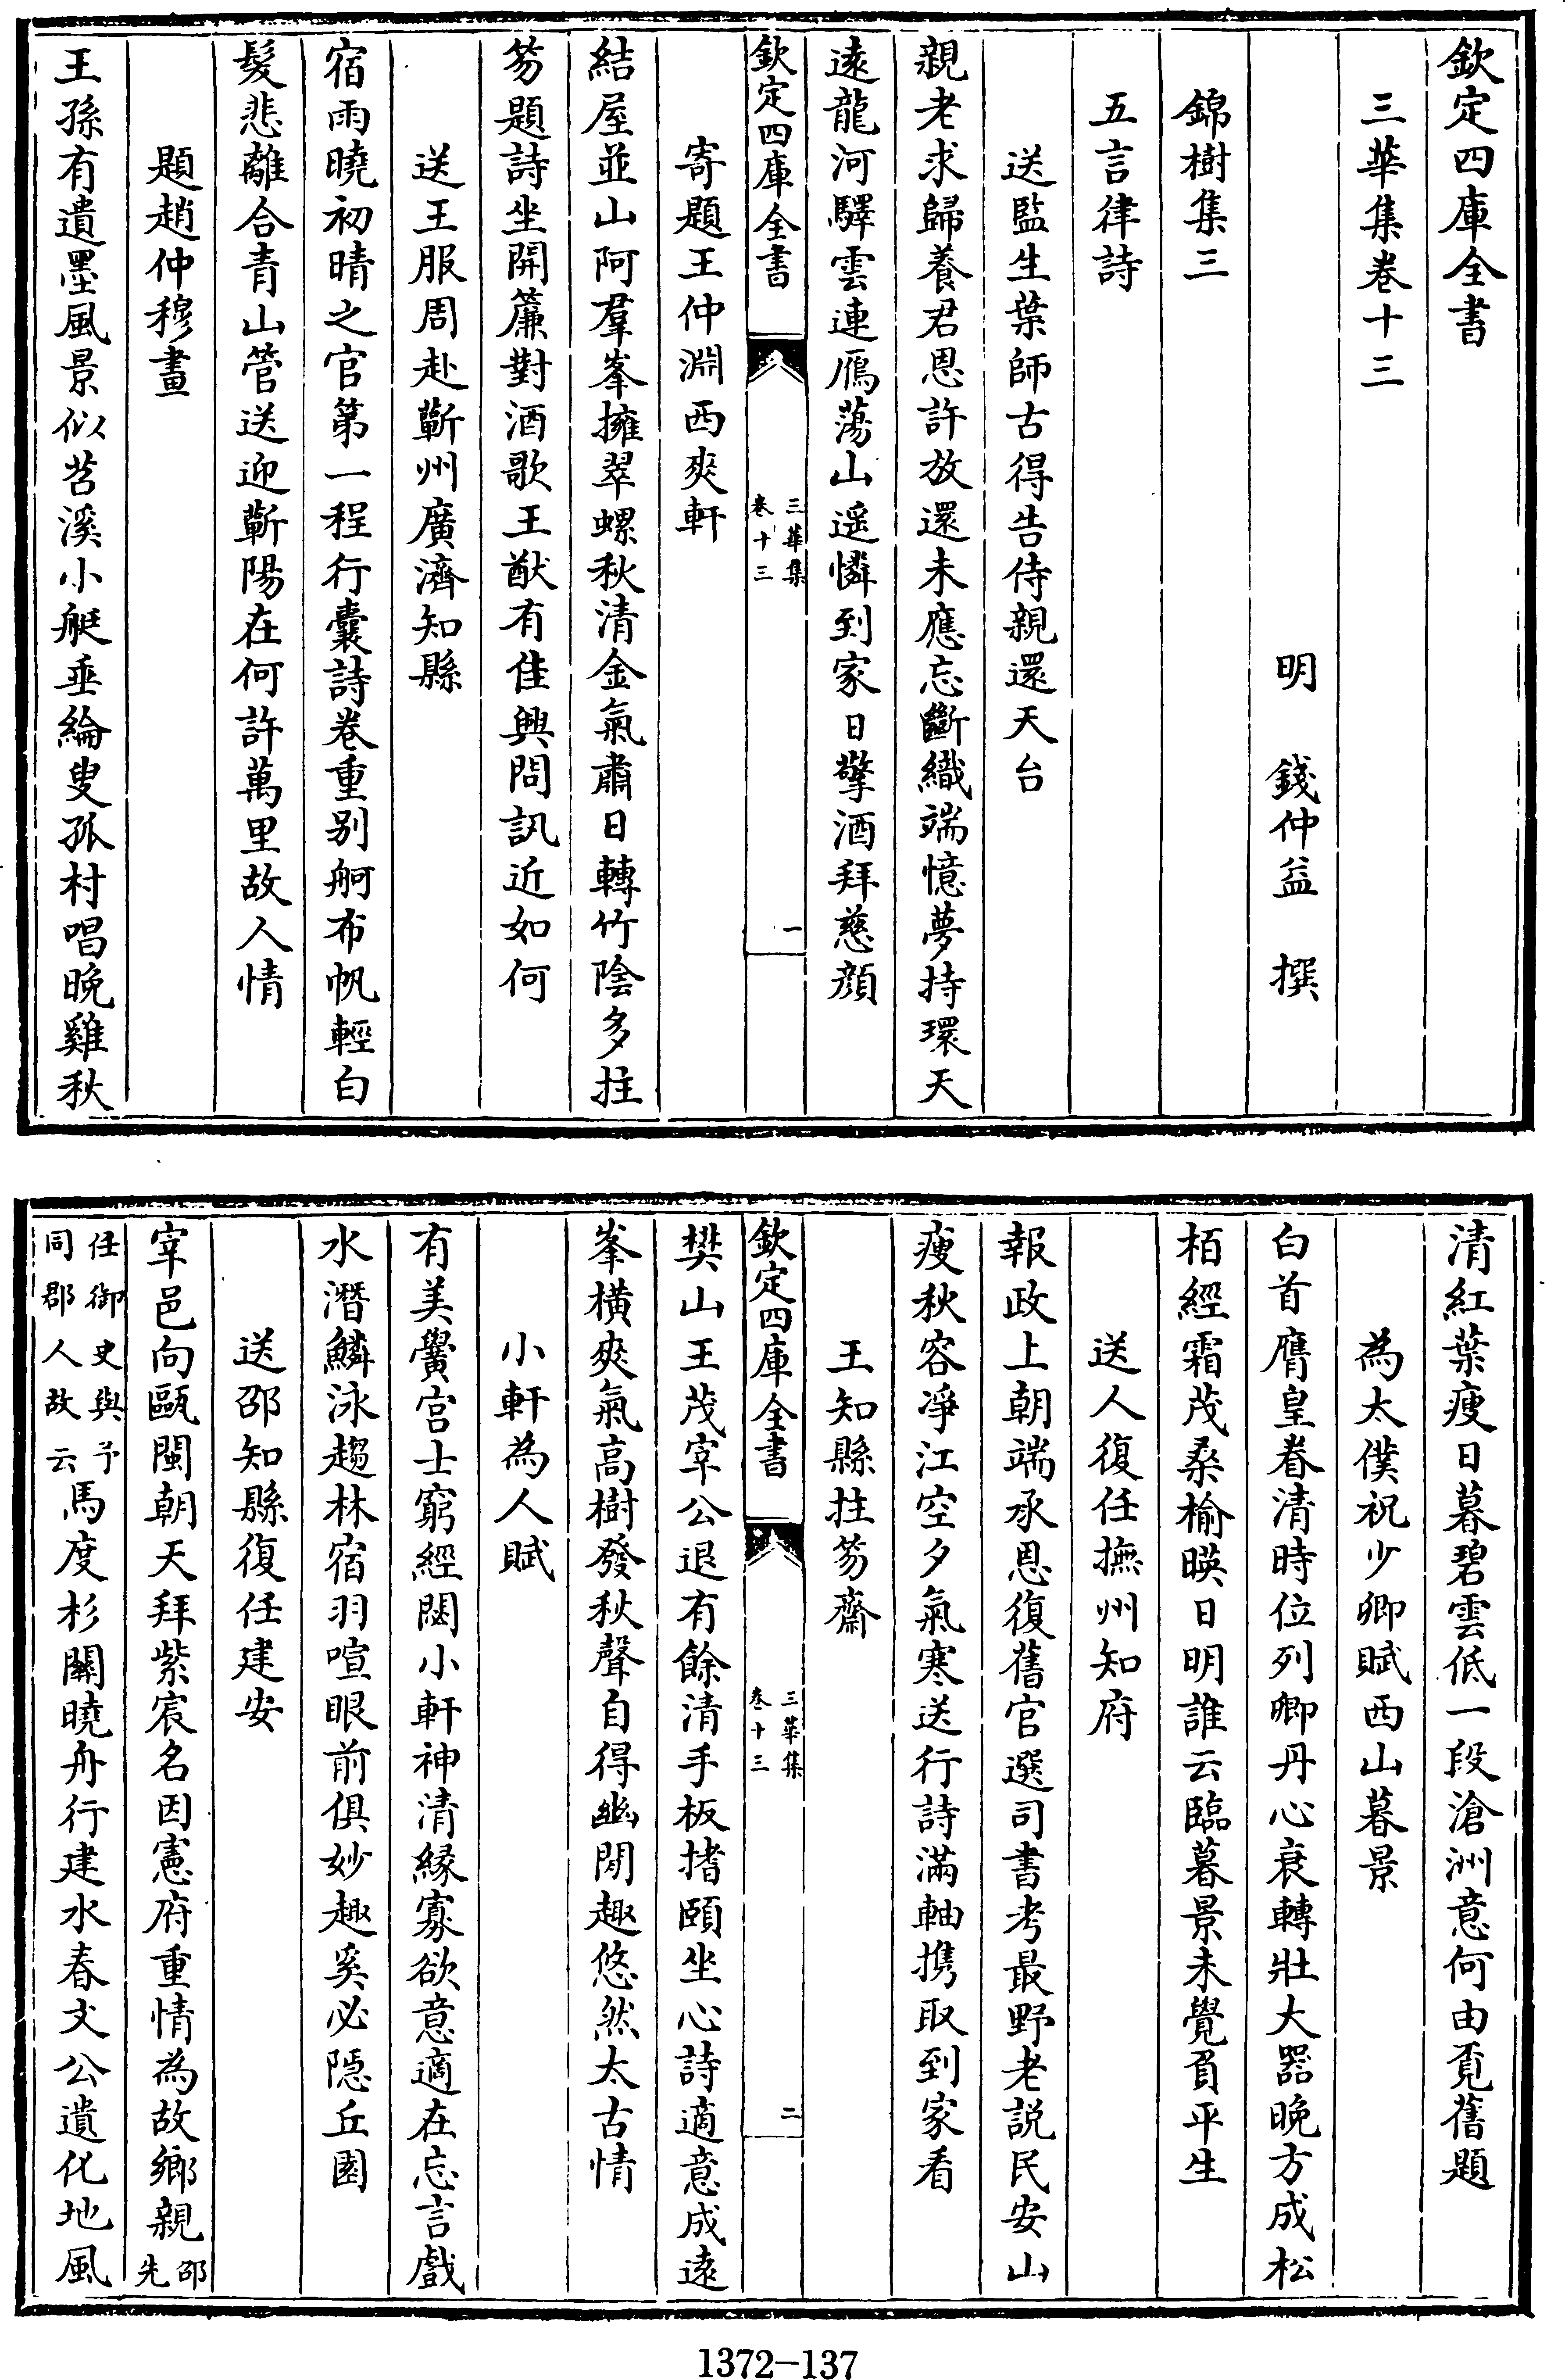 欽定四庫全書
三華集卷十三
明　錢仲益　撰
錦樹集三
五言律詩
送監生葉師古得告侍親還天台
親老求歸養君恩許放還未應忘斷織端憶夢持環天
遠龍河驛雲連鴈蕩山遥憐到家日擎酒拜慈顔
欽定四庫全書
三華集
卷十三
一
寄題王仲淵西爽軒
結屋並山阿羣峯擁翠螺秋清金氣肅日轉竹陰多拄
笏題詩坐開簾對酒歌王猷有佳興問訊近如何
送王服周赴蘄州廣濟知縣
宿雨曉初晴之官第一程行囊詩卷重别舸布帆輕白
髮悲離合青山管送迎蘄陽在何許萬里故人情
題趙仲穆畫
王孫有遺墨風景似苕溪小艇垂綸叟孤村唱晚雞秋
清紅葉痩日暮碧雲低一段滄洲意何由覔舊題
為太僕祝少卿賦西山暮景
白首膺皇眷清時位列卿丹心衰轉壯大器晚方成松
栢經霜茂桑榆暎日明誰云臨暮景未覺負平生
送人復任撫州知府
報政上朝端承恩復舊官選司書考最野老説民安山
痩秋容凈江空夕氣寒送行詩滿軸携取到家看
王知縣拄笏齋
欽定四庫全書
三華集
卷十三
二
樊山王茂宰公退有餘清手板搘頤坐心詩適意成遠
峯横爽氣高樹發秋聲自得幽閒趣悠然太古情
小軒為人賦
有美黌宫士窮經闢小軒神清緣寡欲意適在忘言戲
水潛鱗泳趨林宿羽喧眼前俱妙趣奚必隱丘園
送邵知縣復任建安
宰邑向甌閩朝天拜紫宸名因憲府重情為故鄉親邵先
任御史與予同郡人故云馬度杉關曉舟行建水春文公遺化地風
1372-137